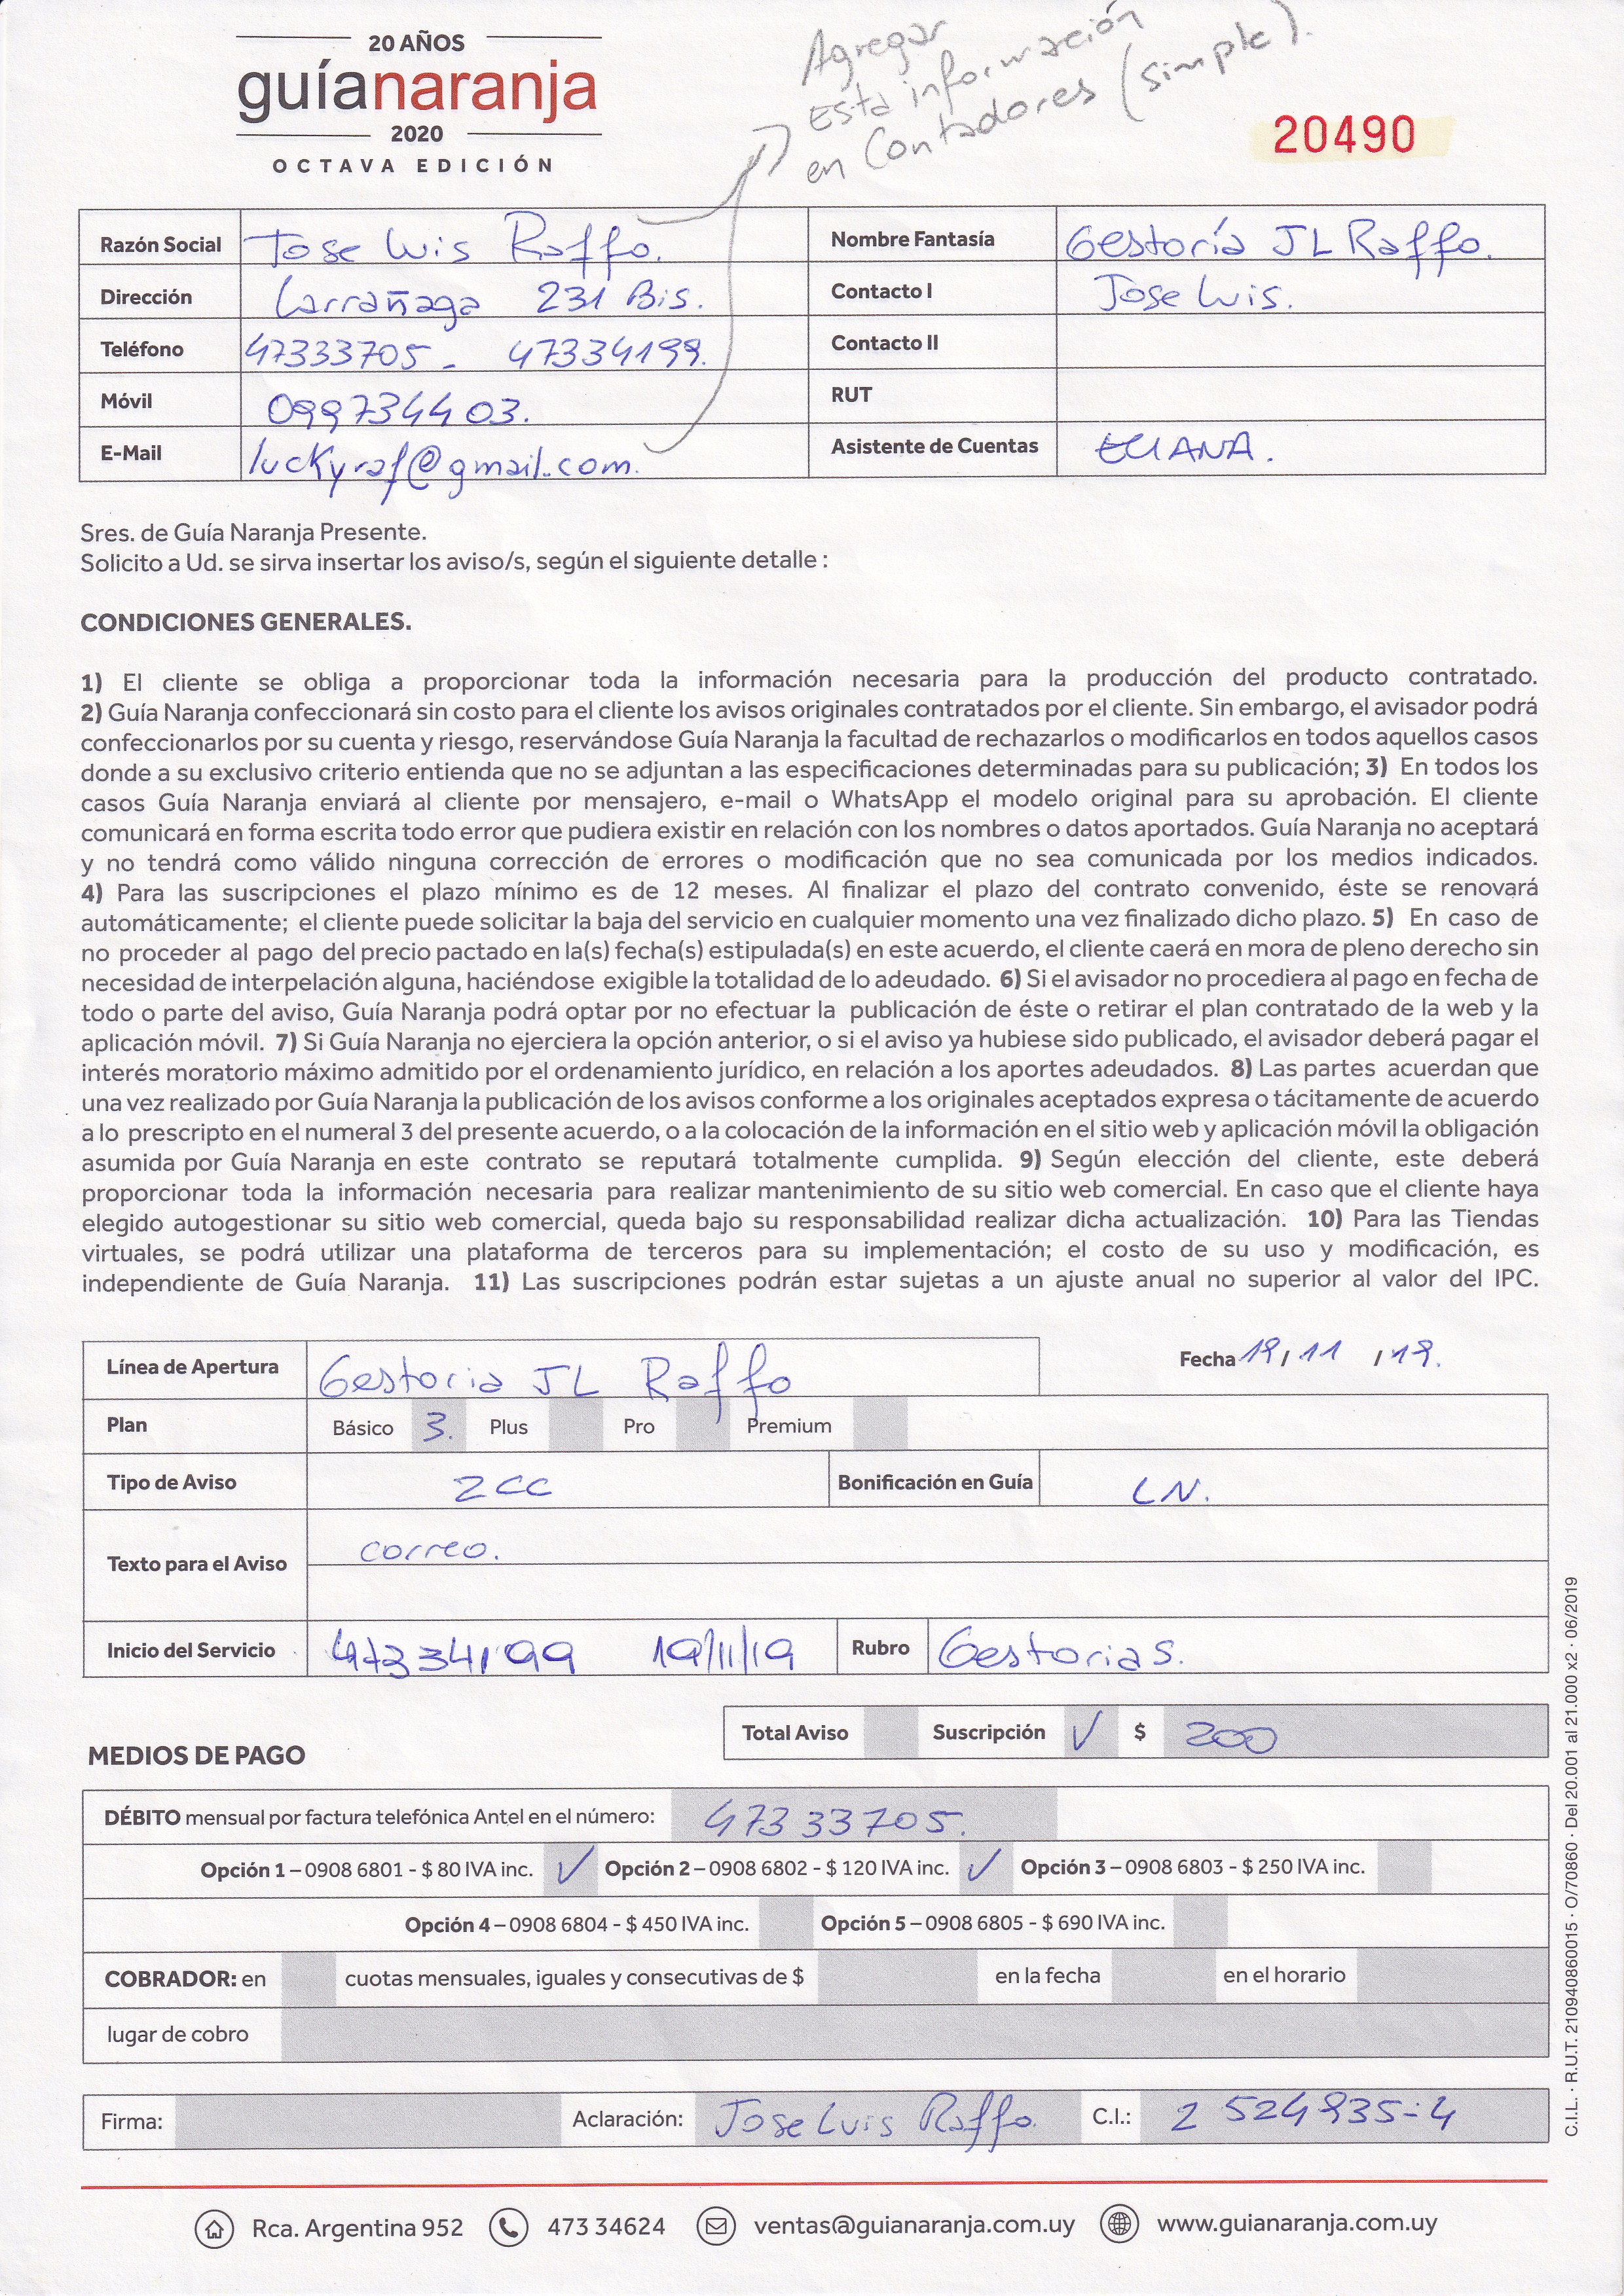 20 AÑOS
guíanaranja
2020
OCTAVA EDICIÓN
Agregar
Esta información
en Contadores (simple).
20490
Razón Social Jose Luis Raffo. Nombre Fantasía Gestoría JL Raffo.
Dirección Larrañaga 231 Bis. Contacto I Jose Luis.
Teléfono 47333705 - 47334199. Contacto II
Móvil 099734403. RUT
E-Mail luckyraf@gmail.com. Asistente de Cuentas ELIANA.
Sres. de Guía Naranja Presente.
Solicito a Ud. se sirva insertar los aviso/s, según el siguiente detalle :
CONDICIONES GENERALES.
1) El cliente se obliga a proporcionar toda la información necesaria para la producción del producto contratado.
2) Guía Naranja confeccionará sin costo para el cliente los avisos originales contratados por el cliente. Sin embargo, el avisador podrá
confeccionarlos por su cuenta y riesgo, reservándose Guía Naranja la facultad de rechazarlos o modificarlos en todos aquellos casos
donde a su exclusivo criterio entienda que no se adjuntan a las especificaciones determinadas para su publicación; 3) En todos los
casos Guía Naranja enviará al cliente por mensajero, e-mail o WhatsApp el modelo original para su aprobación. El cliente
comunicará en forma escrita todo error que pudiera existir en relación con los nombres o datos aportados. Guía Naranja no aceptará
y no tendrá como válido ninguna corrección de errores o modificación que no sea comunicada por los medios indicados.
4) Para las suscripciones el plazo mínimo es de 12 meses. Al finalizar el plazo del contrato convenido, éste se renovará
automáticamente; el cliente puede solicitar la baja del servicio en cualquier momento una vez finalizado dicho plazo. 5) En caso de
no proceder al pago del precio pactado en la(s) fecha(s) estipulada(s) en este acuerdo, el cliente caerá en mora de pleno derecho sin
necesidad de interpelación alguna, haciéndose exigible la totalidad de lo adeudado. 6) Si el avisador no procediera al pago en fecha de
todo o parte del aviso, Guía Naranja podrá optar por no efectuar la publicación de éste o retirar el plan contratado de la web y la
aplicación móvil. 7) Si Guía Naranja no ejerciera la opción anterior, o si el aviso ya hubiese sido publicado, el avisador deberá pagar el
interés moratorio máximo admitido por el ordenamiento jurídico, en relación a los aportes adeudados. 8) Las partes acuerdan que
una vez realizado por Guía Naranja la publicación de los avisos conforme a los originales aceptados expresa o tácitamente de acuerdo
a lo prescripto en el numeral 3 del presente acuerdo, o a la colocación de la información en el sitio web y aplicación móvil la obligación
asumida por Guía Naranja en este contrato se reputará totalmente cumplida. 9) Según elección del cliente, este deberá
proporcionar toda la información necesaria para realizar mantenimiento de su sitio web comercial. En caso que el cliente haya
elegido autogestionar su sitio web comercial, queda bajo su responsabilidad realizar dicha actualización. 10) Para las Tiendas
virtuales, se podrá utilizar una plataforma de terceros para su implementación; el costo de su uso y modificación, es
independiente de Guía Naranja. 11) Las suscripciones podrán estar sujetas a un ajuste anual no superior al valor del IPC.
Línea de Apertura Gestoria JL Raffo Fecha 19/ 11 / 19.
Plan Básico 3. Plus Pro Premium
Tipo de Aviso 2CC Bonificación en Guía LN.
Texto para el Aviso correo.
Inicio del Servicio 47334199 19/11/19 Rubro Gestorias.
Total Aviso Suscripción ✓ $ 200
MEDIOS DE PAGO
DÉBITO mensual por factura telefónica Antel en el número: 47333705.
Opción 1 – 0908 6801 - $ 80 IVA inc. ✓ Opción 2 – 0908 6802 - $ 120 IVA inc. ✓ Opción 3 – 0908 6803 - $ 250 IVA inc.
Opción 4 – 0908 6804 - $ 450 IVA inc. Opción 5 – 0908 6805 - $ 690 IVA inc.
COBRADOR: en cuotas mensuales, iguales y consecutivas de $ en la fecha en el horario
lugar de cobro
Firma: Aclaración: Jose Luis Raffo. C.I.: 2 524935-4
C.I.L. · R.U.T. 210940860015 · O/70860 · Del 20.001 al 21.000 x2 · 06/2019
Rca. Argentina 952 473 34624 ventas@guianaranja.com.uy www.guianaranja.com.uy